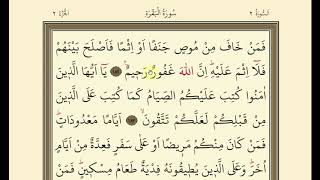 السورة ٢ سورة البقرة الجزء ٢
فَمَنْ خَافَ مِنْ مُوصٍ جَنَفًا اَوْ اِثْمًا فَاَصْلَحَ بَيْنَهُمْ
فَلَٓا اِثْمَ عَلَيْهِ اِنَّ اللّٰهَ غَفُورٌ رَحٖيمٌ ﴿١٨٢﴾ يَٓا اَيُّهَا الَّذٖينَ
اٰمَنُوا كُتِبَ عَلَيْكُمُ الصِّيَامُ كَمَا كُتِبَ عَلَى الَّذٖينَ
مِنْ قَبْلِكُمْ لَعَلَّكُمْ تَتَّقُونَ ﴿١٨٣﴾ اَيَّامًا مَعْدُودَاتٍ
فَمَنْ كَانَ مِنْكُمْ مَرٖيضًا اَوْ عَلٰى سَفَرٍ فَعِدَّةٌ مِنْ اَيَّامٍ
اُخَرَ وَعَلَى الَّذٖينَ يُطٖيقُونَهُ فِدْيَةٌ طَعَامُ مِسْكٖينٍ فَمَنْ